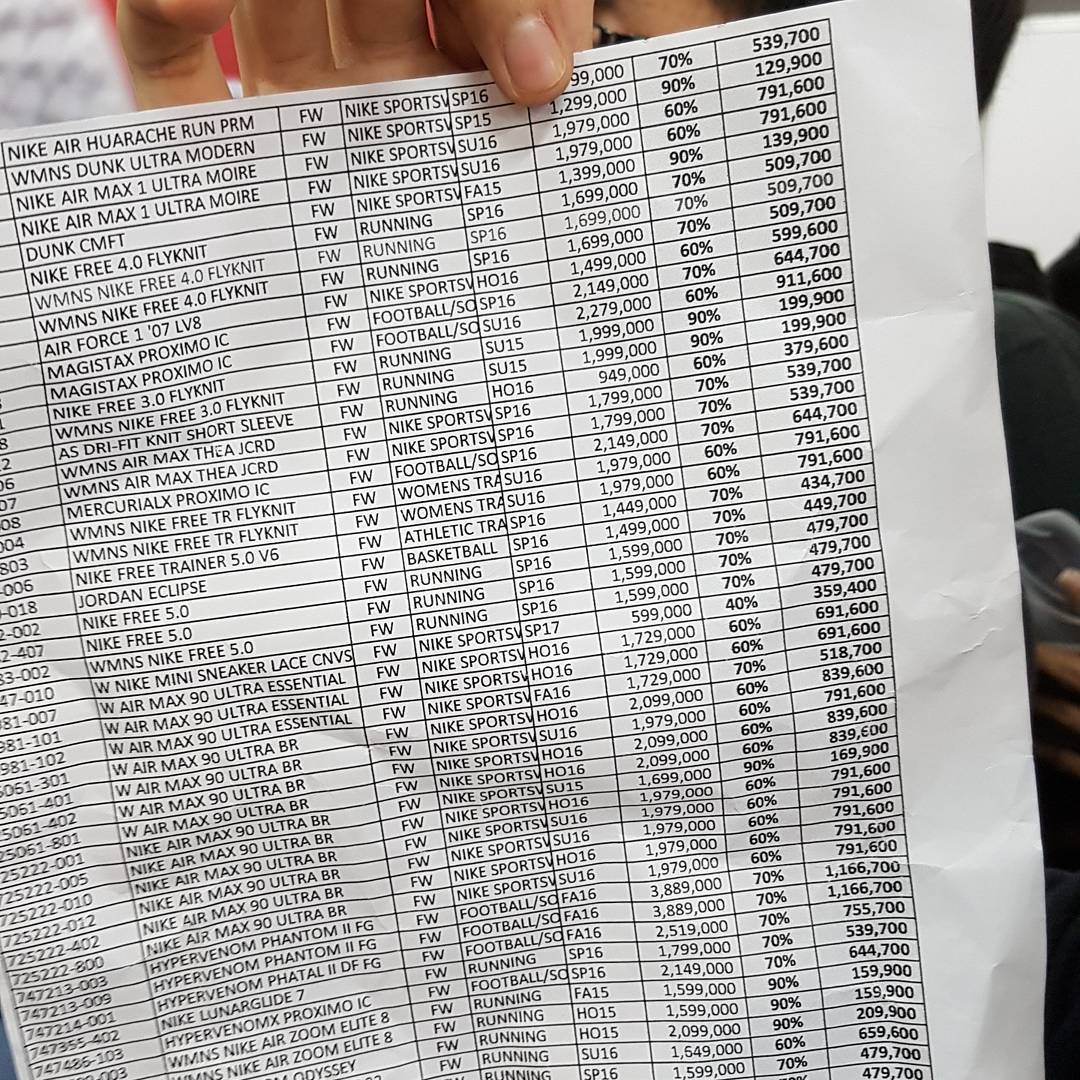 NIKE AIR HUARACHE RUN PRM FW NIKE SPORTSW SP16 99,000 70% 539,700
WMNS DUNK ULTRA MODERN FW NIKE SPORTSW SP15 1,299,000 90% 129,900
NIKE AIR MAX 1 ULTRA MOIRE FW NIKE SPORTSW SU16 1,979,000 60% 791,600
NIKE AIR MAX 1 ULTRA MOIRE FW NIKE SPORTSW SU16 1,979,000 60% 791,600
DUNK CMFT FW NIKE SPORTSW FA15 1,399,000 90% 139,900
NIKE FREE 4.0 FLYKNIT FW RUNNING SP16 1,699,000 70% 509,700
WMNS NIKE FREE 4.0 FLYKNIT FW RUNNING SP16 1,699,000 70% 509,700
WMNS NIKE FREE 4.0 FLYKNIT FW RUNNING SP16 1,699,000 70% 509,700
AIR FORCE 1 '07 LV8 FW NIKE SPORTSW HO16 1,499,000 60% 599,600
MAGISTAX PROXIMO IC FW FOOTBALL/SO SP16 2,149,000 70% 644,700
MAGISTAX PROXIMO IC FW FOOTBALL/SO SU16 2,279,000 60% 911,600
NIKE FREE 3.0 FLYKNIT FW RUNNING SU15 1,999,000 90% 199,900
WMNS NIKE FREE 3.0 FLYKNIT FW RUNNING SU15 1,999,000 90% 199,900
AS DRI-FIT KNIT SHORT SLEEVE FW RUNNING HO16 949,000 60% 379,600
WMNS AIR MAX THEA JCRD FW NIKE SPORTSW SP16 1,799,000 70% 539,700
WMNS AIR MAX THEA JCRD FW NIKE SPORTSW SP16 1,799,000 70% 539,700
MERCURIALX PROXIMO IC FW FOOTBALL/SO SP16 2,149,000 70% 644,700
004 WMNS NIKE FREE TR FLYKNIT FW WOMENS TRA SU16 1,979,000 60% 791,600
803 WMNS NIKE FREE TR FLYKNIT FW WOMENS TRA SU16 1,979,000 60% 791,600
-006 NIKE FREE TRAINER 5.0 V6 FW ATHLETIC TRA SP16 1,449,000 70% 434,700
-018 JORDAN ECLIPSE FW BASKETBALL SP16 1,499,000 70% 449,700
2-002 NIKE FREE 5.0 FW RUNNING SP16 1,599,000 70% 479,700
2-407 NIKE FREE 5.0 FW RUNNING SP16 1,599,000 70% 479,700
83-002 WMNS NIKE FREE 5.0 FW RUNNING SP16 1,599,000 70% 479,700
47-010 W NIKE MINI SNEAKER LACE CNVS FW NIKE SPORTSW SP17 599,000 40% 359,400
981-007 W AIR MAX 90 ULTRA ESSENTIAL FW NIKE SPORTSW HO16 1,729,000 60% 691,600
981-101 W AIR MAX 90 ULTRA ESSENTIAL FW NIKE SPORTSW HO16 1,729,000 60% 691,600
981-102 W AIR MAX 90 ULTRA ESSENTIAL FW NIKE SPORTSW FA16 1,729,000 70% 518,700
5061-301 W AIR MAX 90 ULTRA BR FW NIKE SPORTSW HO16 2,099,000 60% 839,600
5061-401 W AIR MAX 90 ULTRA BR FW NIKE SPORTSW SU16 1,979,000 60% 791,600
25061-402 W AIR MAX 90 ULTRA BR FW NIKE SPORTSW HO16 2,099,000 60% 839,600
25061-801 W AIR MAX 90 ULTRA BR FW NIKE SPORTSW HO16 2,099,000 60% 839,600
25222-001 NIKE AIR MAX 90 ULTRA BR FW NIKE SPORTSW SU15 1,699,000 90% 169,900
25222-005 NIKE AIR MAX 90 ULTRA BR FW NIKE SPORTSW HO16 1,979,000 60% 791,600
725222-010 NIKE AIR MAX 90 ULTRA BR FW NIKE SPORTSW SU16 1,979,000 60% 791,600
725222-012 NIKE AIR MAX 90 ULTRA BR FW NIKE SPORTSW SU16 1,979,000 60% 791,600
725222-402 NIKE AIR MAX 90 ULTRA BR FW NIKE SPORTSW HO16 1,979,000 60% 791,600
725222-800 NIKE AIR MAX 90 ULTRA BR FW NIKE SPORTSW SU16 1,979,000 60% 791,600
747213-003 HYPERVENOM PHANTOM II FG FW FOOTBALL/SO FA16 3,889,000 70% 1,166,700
747213-009 HYPERVENOM PHANTOM II FG FW FOOTBALL/SO FA16 3,889,000 70% 1,166,700
747214-001 HYPERVENOM PHATAL II DF FG FW FOOTBALL/SO FA16 2,519,000 70% 755,700
747355-402 NIKE LUNARGLIDE 7 FW RUNNING SP16 1,799,000 70% 539,700
747486-103 HYPERVENOMX PROXIMO IC FW FOOTBALL/SO SP16 2,149,000 70% 644,700
-003 WMNS NIKE AIR ZOOM ELITE 8 FW RUNNING FA15 1,599,000 90% 159,900
WMNS NIKE AIR ZOOM ELITE 8 FW RUNNING HO15 1,599,000 90% 159,900
ODYSSEY FW RUNNING HO15 2,099,000 90% 209,900
FW RUNNING SU16 1,649,000 60% 659,600
RUNNING SP16 1,599,000 70% 479,700